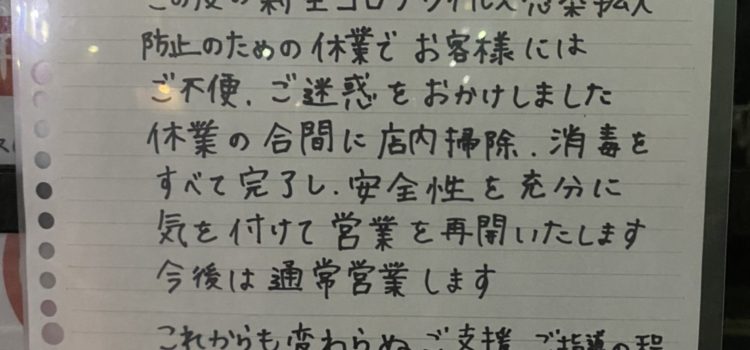 この度の新型コロナウイルス感染拡大
防止のための休業でお客様には
ご不便、ご迷惑をおかけしました
休業の合間に店内掃除、消毒を
すべて完了し、安全性を充分に
気を付けて営業を再開いたします
今後は通常営業します
これからも変わらぬご支援、ご指導の程